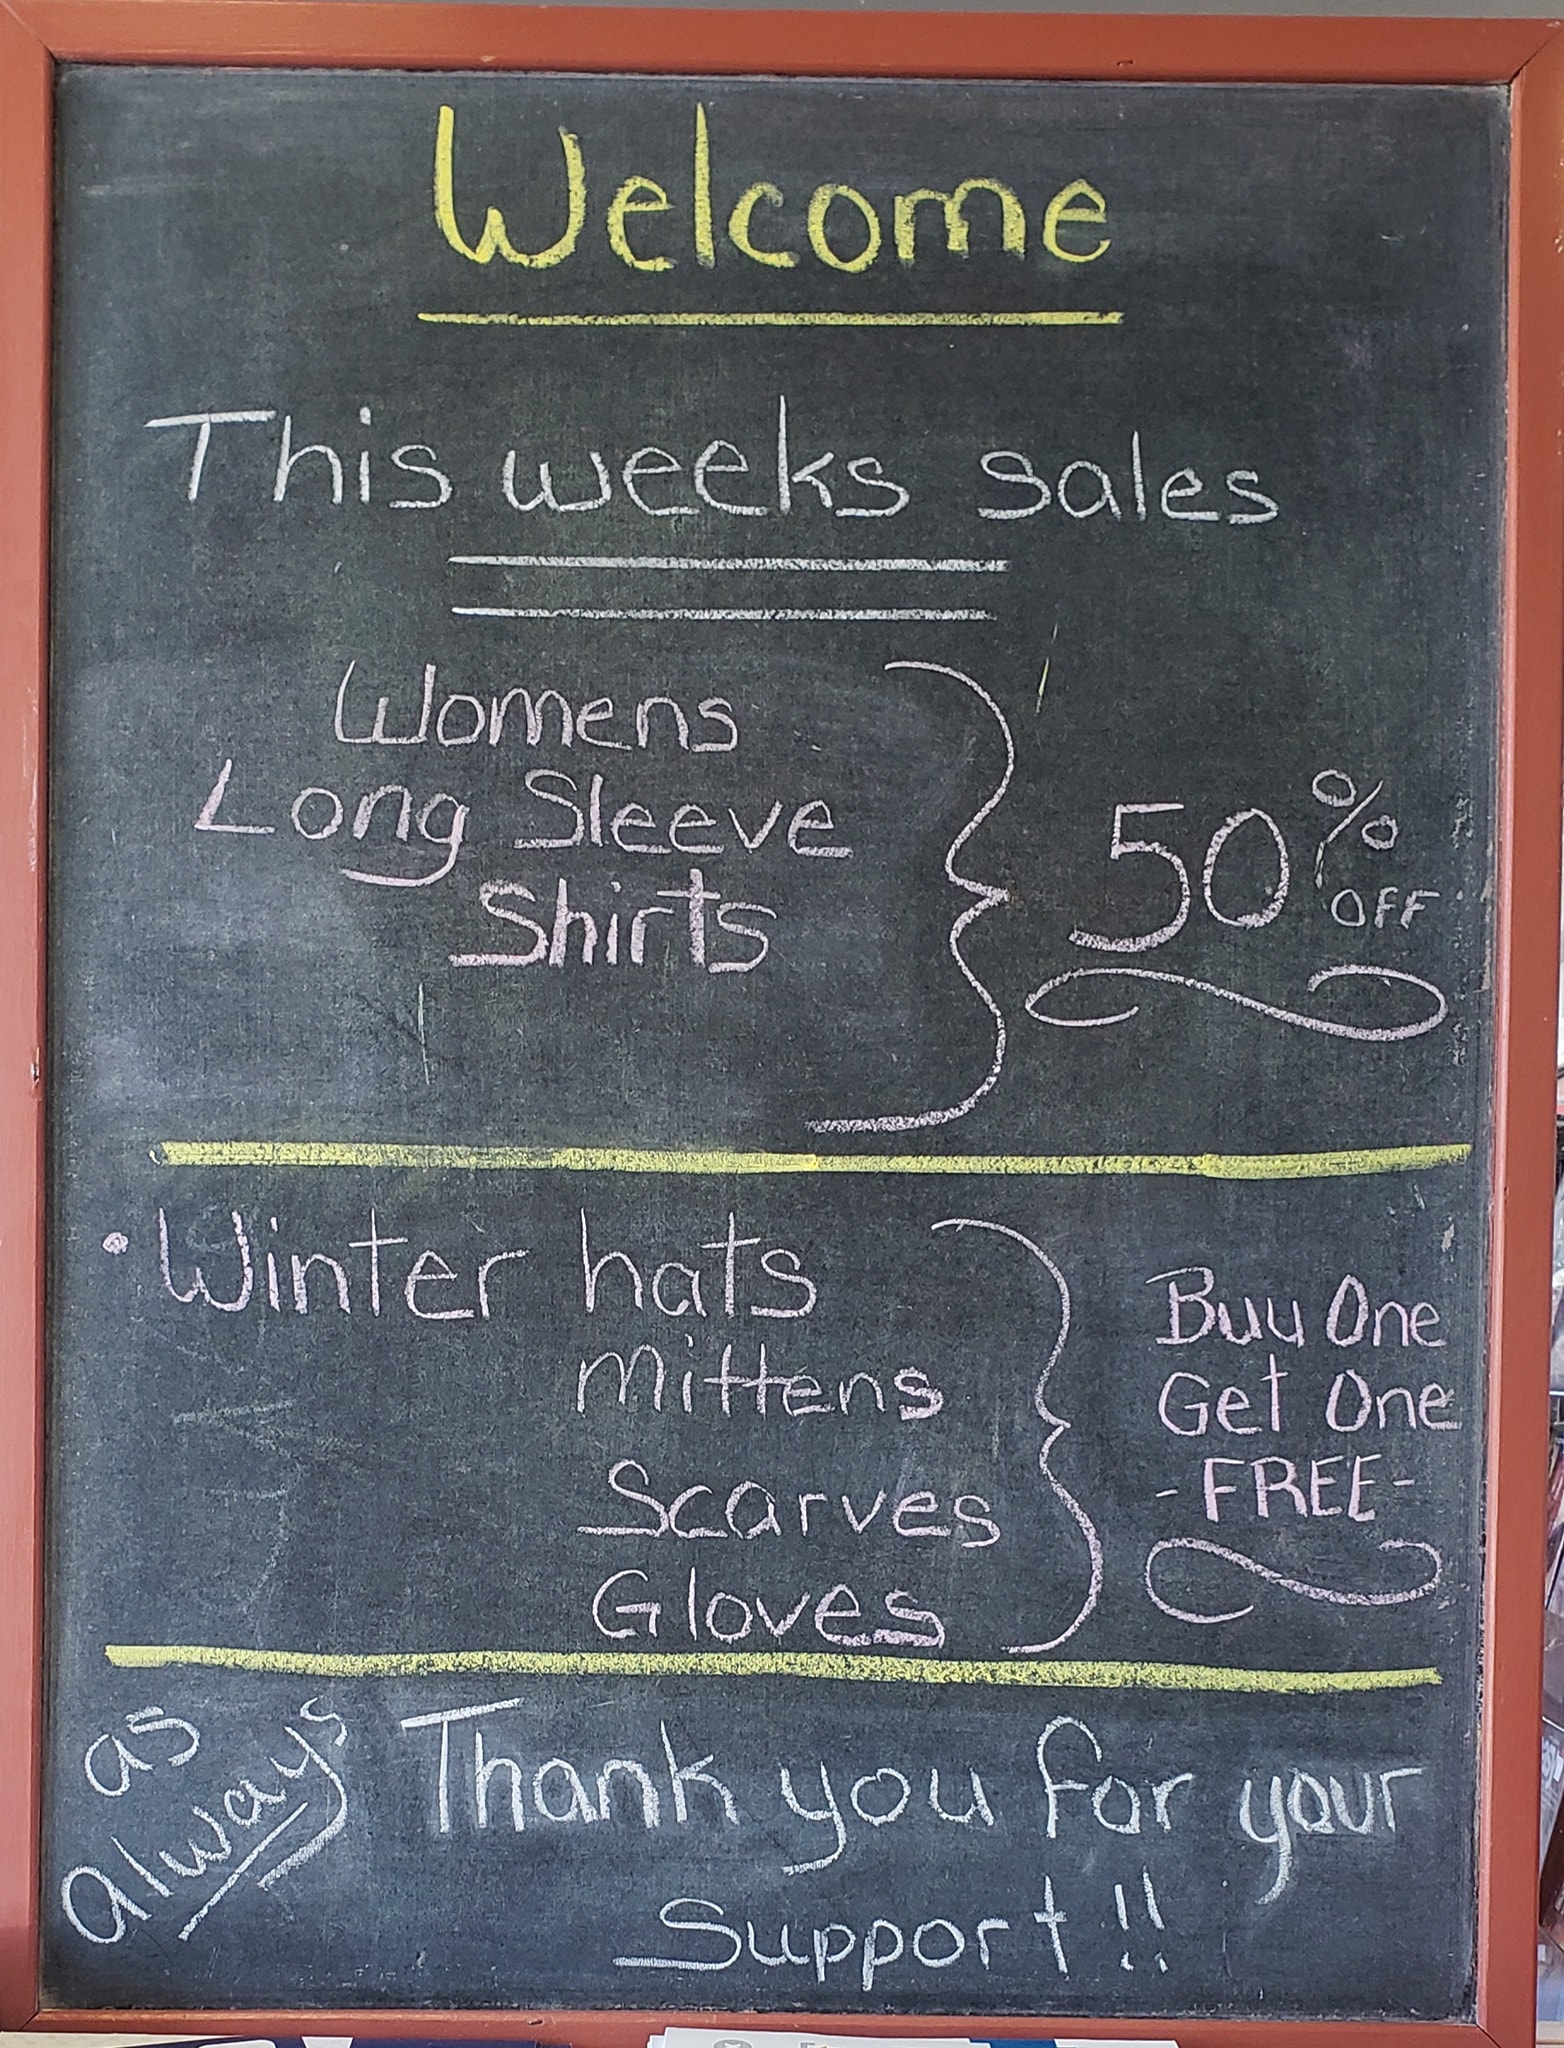 Welcome
This weeks sales
Womens
Long Sleeve
Shirts
50% OFF
• Winter hats
Mittens
Scarves
Gloves
Buy One
Get One
- FREE -
as
always
Thank you for your
Support!!